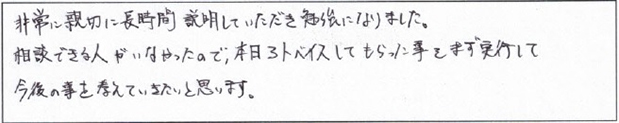 非常に親切に長時間説明していただき勉強になりました。
相談できる人がいなかったので、本日アドバイスしてもらった事をまず実行して
今後の事を考えていきたいと思います。